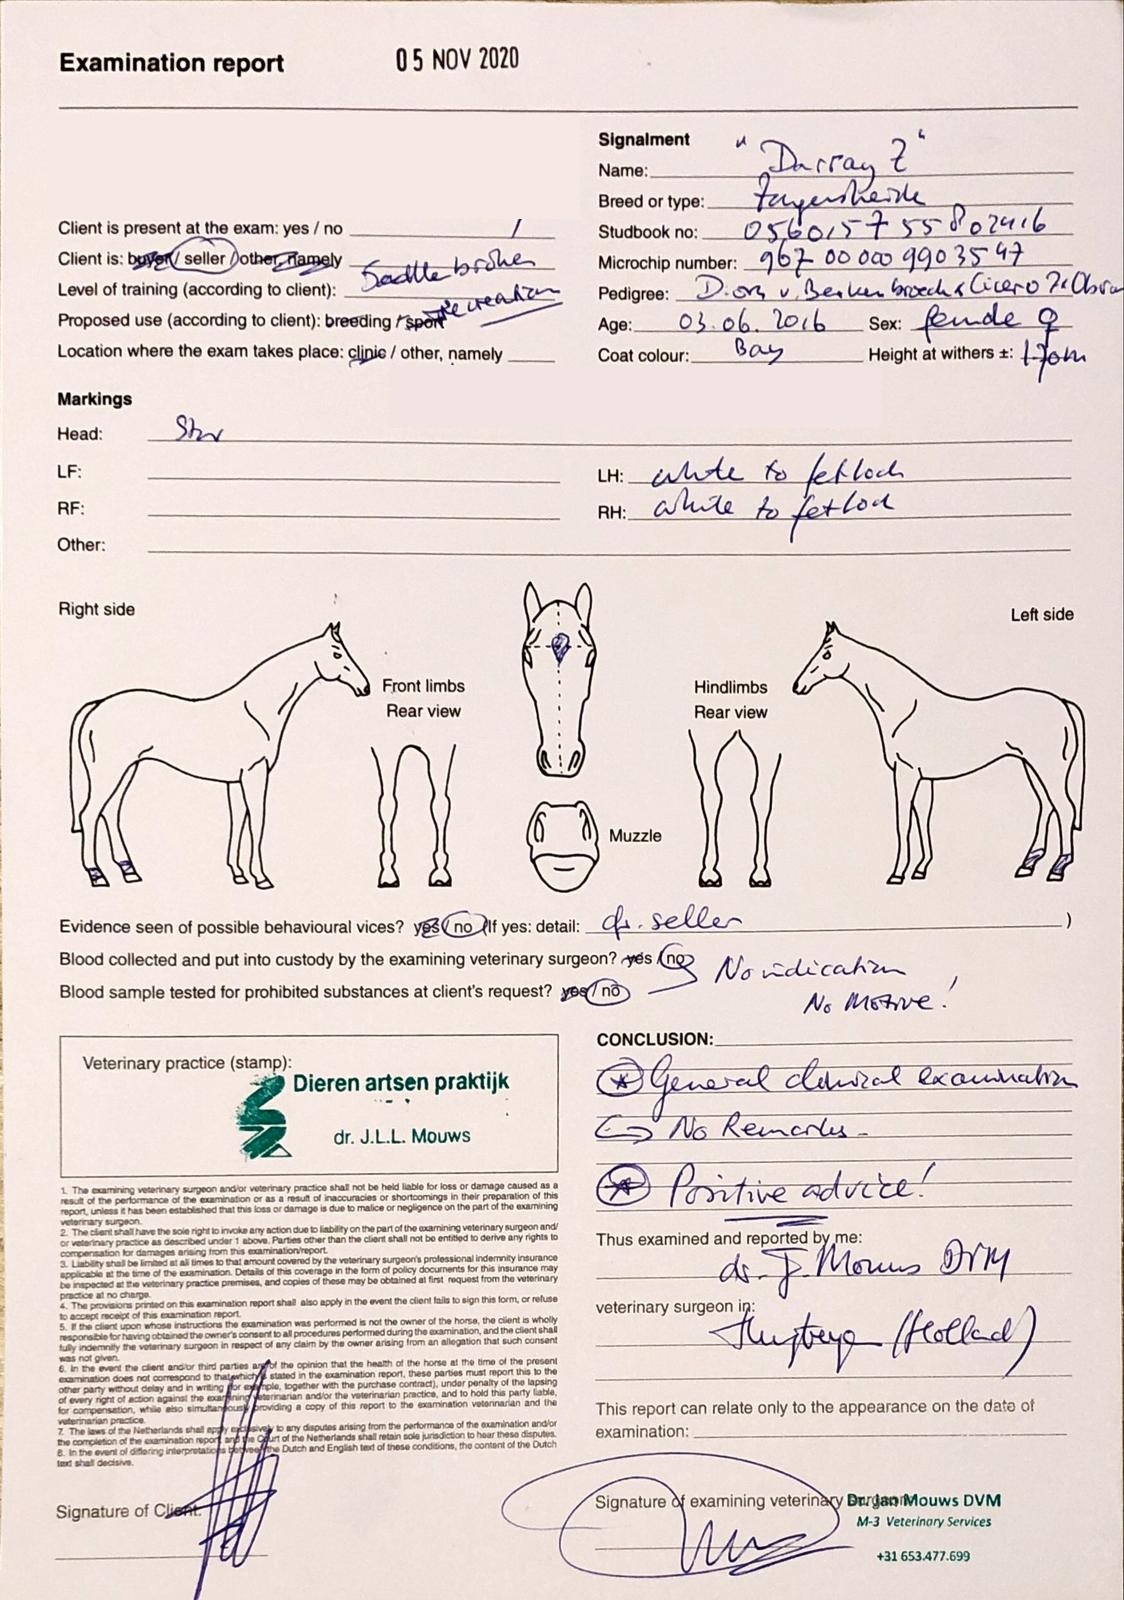 Examination report
05 NOV 2020
Signalment
Name: "Darray Z"
Breed or type:
Studbook no: 056015755802416
Microchip number: 967 00 000 990 35 47
Pedigree: v. Berkenbroeck x Cicero Z x
Age: 03.06.2016 Sex: female ♀
Coat colour: Bay Height at withers ±: 170m
Client is present at the exam: yes / no /
Client is: buyer / seller / other, namely
Level of training (according to client): Saddle broken
Proposed use (according to client): breeding / sport Recreation
Location where the exam takes place: clinic / other, namely
Markings
Head: Star
LF:
LH: white to fetlock
RF:
RH: white to fetlock
Other:
Right side
Left side
Front limbs
Rear view
Hindlimbs
Rear view
Muzzle
Evidence seen of possible behavioural vices? yes / no (If yes: detail: seller )
Blood collected and put into custody by the examining veterinary surgeon? yes / no
Blood sample tested for prohibited substances at client's request? yes / no
No indication
No Motive!
Veterinary practice (stamp):
Dieren artsen praktijk
dr. J.L.L. Mouws
CONCLUSION:
General clinical examination
No Remarks -
Positive advice!
1. The examining veterinary surgeon and/or veterinary practice shall not be held liable for loss or damage caused as a
result of the performance of the examination or as a result of inaccuracies or shortcomings in their preparation of this
report, unless it has been established that this loss or damage is due to malice or negligence on the part of the examining
veterinary surgeon.
2. The client shall have the sole right to invoke any action due to liability on the part of the examining veterinary surgeon and/
or veterinary practice as described under 1 above. Parties other than the client shall not be entitled to derive any rights to
compensation for damages arising from this examination/report.
3. Liability shall be limited at all times to that amount covered by the veterinary surgeon's professional indemnity insurance
applicable at the time of the examination. Details of this coverage in the form of policy documents for this insurance may
be inspected at the veterinary practice premises, and copies of these may be obtained at first request from the veterinary
practice at no charge.
4. The provisions printed on this examination report shall also apply in the event the client fails to sign this form, or refuse
to accept receipt of this examination report.
5. If the client upon whose instructions the examination was performed is not the owner of the horse, the client is wholly
responsible for having obtained the owner's consent to all procedures performed during the examination, and the client shall
fully indemnify the veterinary surgeon in respect of any claim by the owner arising from an allegation that such consent
was not given.
6. In the event the client and/or third parties are of the opinion that the health of the horse at the time of the present
examination does not correspond to that which is stated in the examination report, these parties must report this to the
other party without delay and in writing (for example, together with the purchase contract), under penalty of the lapsing
of every right of action against the examining veterinarian and/or the veterinarian practice, and to hold this party liable,
for compensation, while also simultaneously providing a copy of this report to the examination veterinarian and the
veterinarian practice.
7. The laws of the Netherlands shall apply exclusively to any disputes arising from the performance of the examination and/or
the completion of the examination report and the Court of the Netherlands shall retain sole jurisdiction to hear these disputes.
8. In the event of differing interpretations between the Dutch and English text of these conditions, the content of the Dutch
text shall decisive.
Thus examined and reported by me:
dr. J. Mouws DVM
veterinary surgeon in:
(Holland)
This report can relate only to the appearance on the date of
examination:
Signature of Client:
Signature of examining veterinary surgeon:
Dr. Jan Mouws DVM
M-3 Veterinary Services
+31 653.477.699